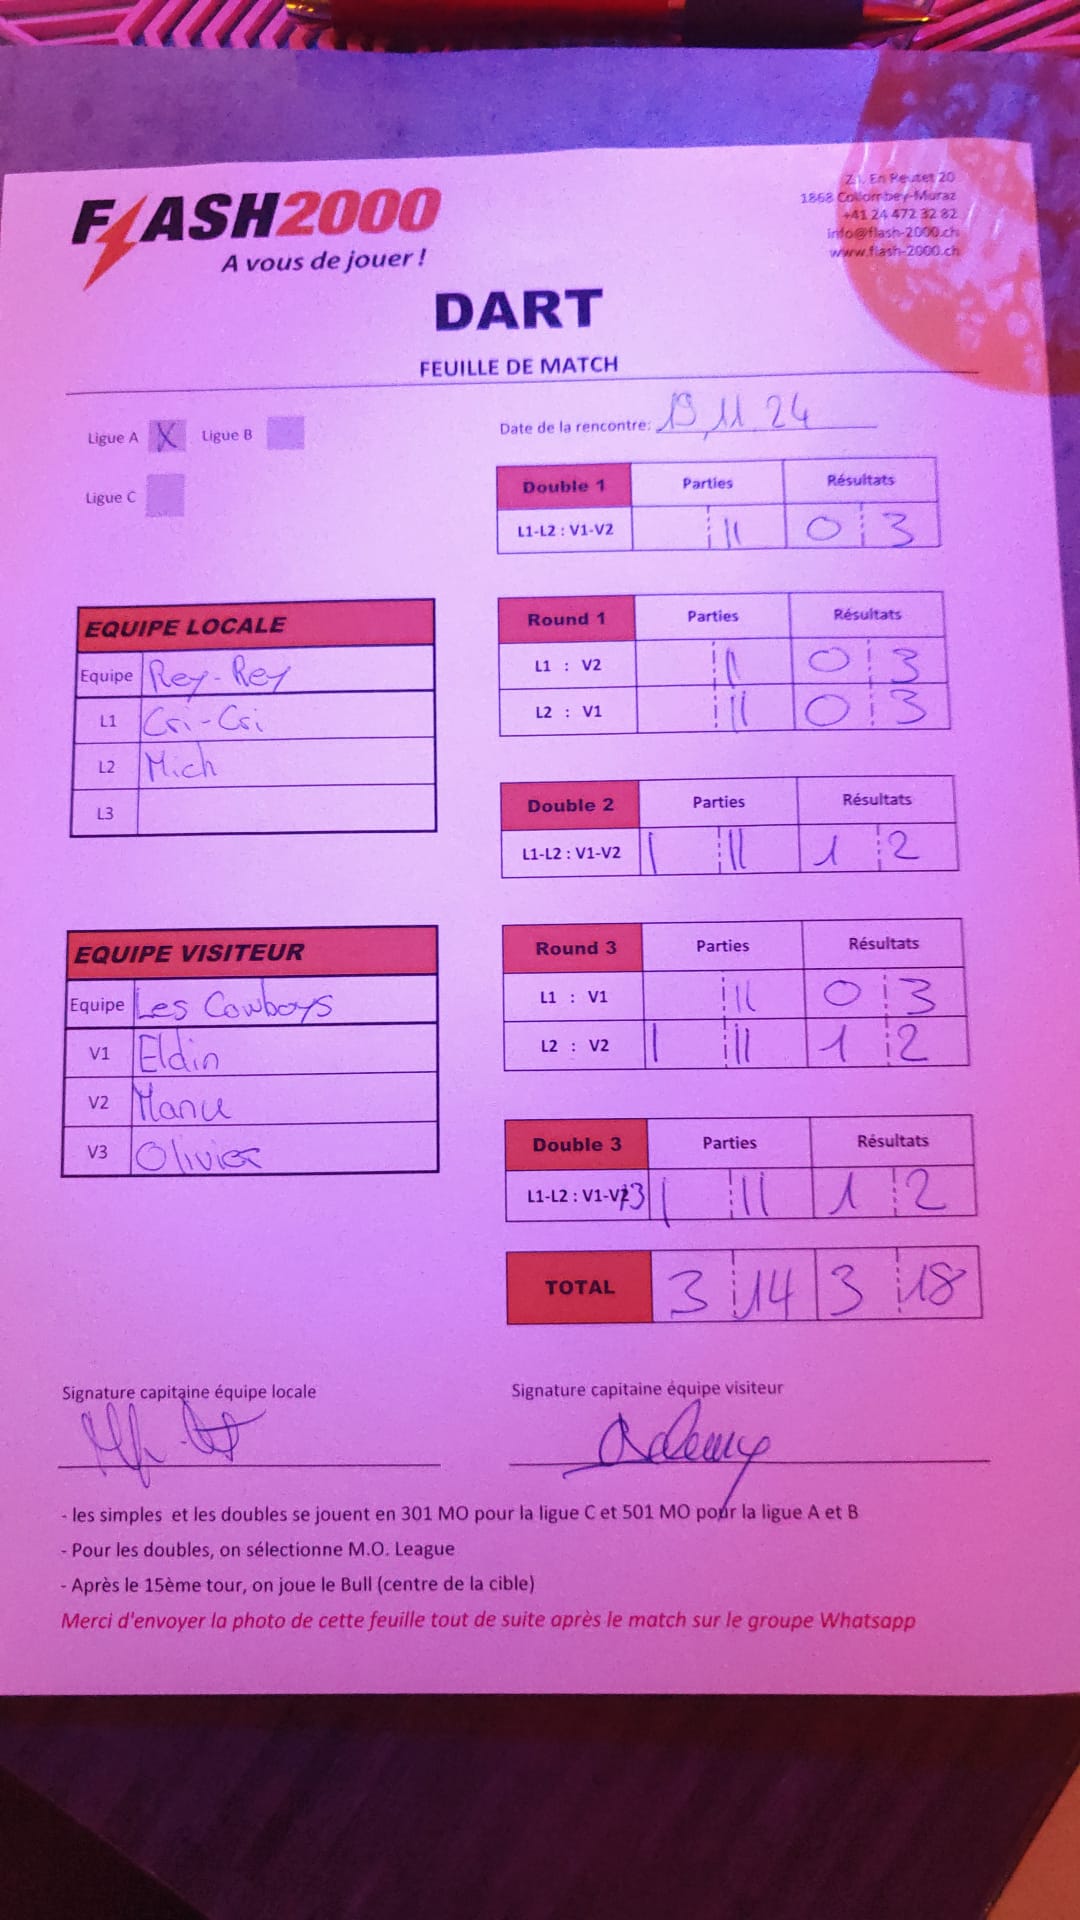 FLASH2000
A vous de jouer !
Z.I. En Reutet 20
1868 Collombey-Muraz
+41 24 472 32 82
info@flash-2000.ch
www.flash-2000.ch
DART
FEUILLE DE MATCH
Ligue A X Ligue B
Ligue C
Date de la rencontre: 19.11.24
Double 1 Parties Résultats
L1-L2 : V1-V2 || 0 3
EQUIPE LOCALE
Equipe Rey-Rey
L1 Cri-Cri
L2 Mich
L3
Round 1 Parties Résultats
L1 : V2 || 0 3
L2 : V1 || 0 3
Double 2 Parties Résultats
L1-L2 : V1-V2 | || 1 2
EQUIPE VISITEUR
Equipe Les Cowboys
V1 Eldin
V2 Manu
V3 Olivier
Round 3 Parties Résultats
L1 : V1 || 0 3
L2 : V2 | || 1 2
Double 3 Parties Résultats
L1-L2 : V1-V3 | || 1 2
TOTAL 3 14 3 18
Signature capitaine équipe locale
Signature capitaine équipe visiteur
- les simples et les doubles se jouent en 301 MO pour la ligue C et 501 MO pour la ligue A et B
- Pour les doubles, on sélectionne M.O. League
- Après le 15ème tour, on joue le Bull (centre de la cible)
Merci d'envoyer la photo de cette feuille tout de suite après le match sur le groupe Whatsapp